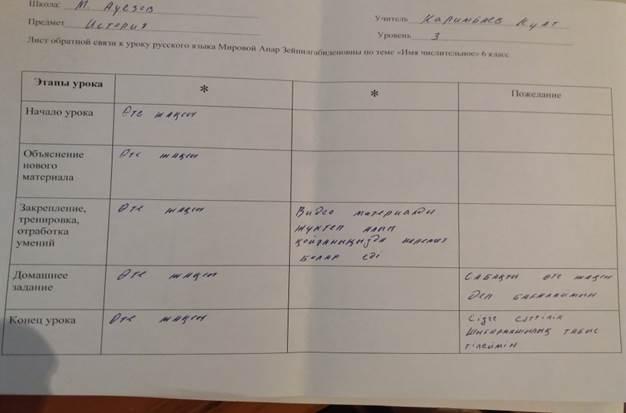 Школа: М. Ауезов
Учитель Каримбаев Куат
Предмет История
Уровень 3
Лист обратной связи к уроку русского языка Мировой Анар Зейнилгабиденовны по теме «Имя числительное» 6 класс
Этапы урока * * Пожелание
Начало урока Өте жақсы
Объяснение Өте жақсы
нового
материала
Закрепление, Өте жақсы Видео материалды
тренировка, жүктеп алып
отработка қойғаныңызда керемет
умений болар еді
Домашнее Өте жақсы Сабақты өте жақсы
задание деп бағалаймын
Конец урока Өте жақсы Сізге сәттілік
Шығармашылық табыс
тілеймін